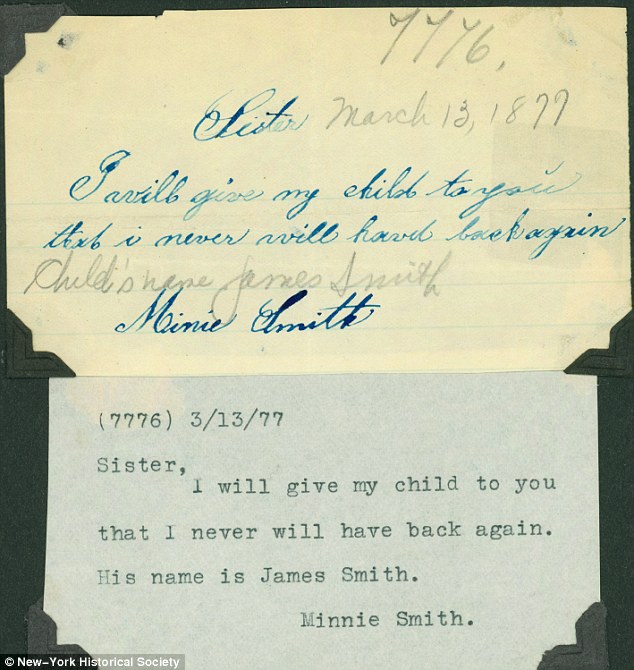 7776,
Sister March 13, 1877
I will give my child to you
that i never will havd back again
Child's name James Smith
Minie Smith
(7776) 3/13/77
Sister,
I will give my child to you
that I never will have back again.
His name is James Smith.
Minnie Smith.
© New-York Historical Society